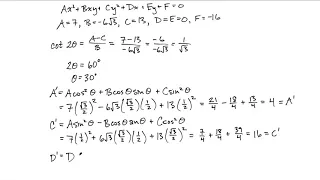 Ax² + Bxy + Cy² + Dx + Ey + F = 0
A = 7, B = -6√3, C = 13, D = E = 0, F = -16
cot 2θ = (A-C)/B = (7-13)/(-6√3) = -6/(-6√3) = 1/√3
2θ = 60°
θ = 30°
A' = A cos²θ + B cosθ sinθ + C sin²θ
= 7(√3/2)² - 6√3(√3/2)(1/2) + 13(1/2)² = 21/4 - 18/4 + 13/4 = 4 = A'
C' = A sin²θ - B cosθ sinθ + C cos²θ
= 7(1/2)² + 6√3(√3/2)(1/2) + 13(√3/2)² = 7/4 + 18/4 + 39/4 = 16 = C'
D' = D